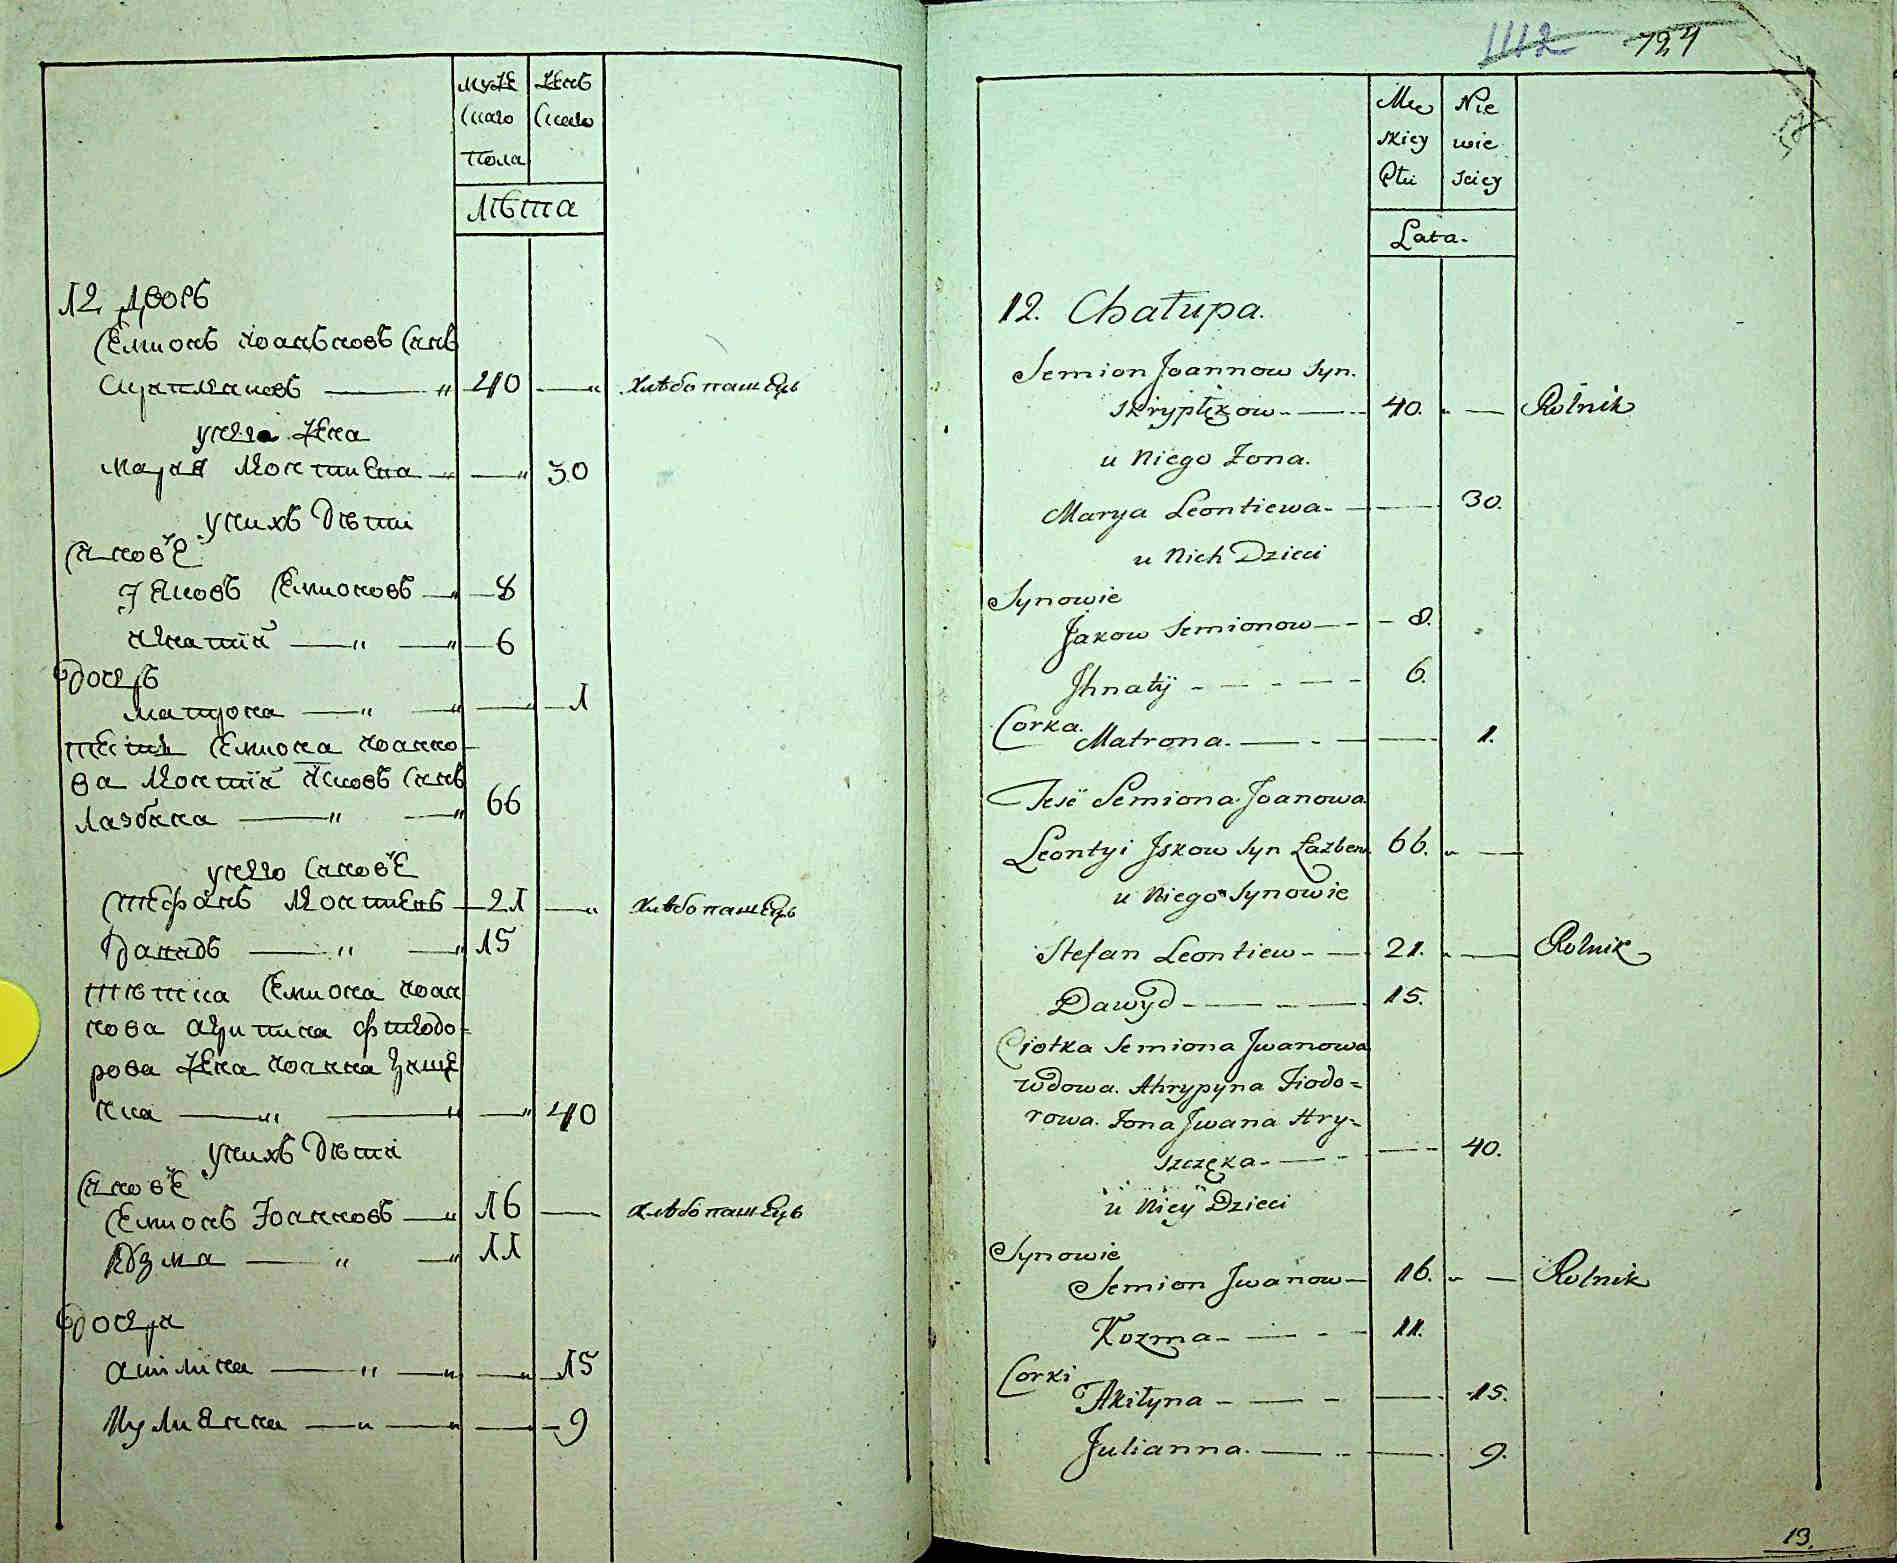 муже
скаго
пола
женс
скаго
лѣта
12 дворъ
Семионъ Иоанновъ синъ
Скрипляковъ — 40 — хлѣбопашець
у него жена
мария Леонтиева — 30
у нихъ дѣти
синовѣ
Іяковъ Семионовъ — 8
игнатий — 6
дочерь
матрона — 1
тесть Семиона иоанно-
ва Леонтий Исковъ синъ
Лазбена — 66
у него синовѣ
Стефанъ Леонтиевъ — 21 — хлѣбопашець
Давидъ — 15
тіотка Семиона иоан
нова агрипина фтиодо-
рова жена иоанна грище
кна — 40
у нихъ дѣти
синовѣ
Семионъ Іоанновъ — 16 — хлѣбопашець
Козма — 11
дочери
акилина — 15
иулианна — 9
1112 124
Mę
skiey
Płci
Nie
wie
sciey
Lata.
12. Chałupa.
Semion Joannow Syn.
Skryplękow — 40. — Rolnik
u Niego Żona.
Marya Leontiewa — 30.
u Nich Dzieci
Synowie
Jakow Semionow — 8.
Jhnatÿ — 6.
Corka.
Matrona. — 1.
Tesć Semiona Joanowa
Leontyi Jskow Syn Łazben 66.
u Niego Synowie
Stefan Leontiew — 21. — Rolnik
Dawyd — 15.
Ciotka Semiona Jwanowa
wdowa. Ahrypyna Fiodo=
rowa. Żona Jwana Hry=
szczęka — 40.
u Niey Dzieci
Synowie
Semion Jwanow — 16. — Rolnik
Kozma — 11.
Corki
Akilyna — 15.
Julianna. — 9.
13.